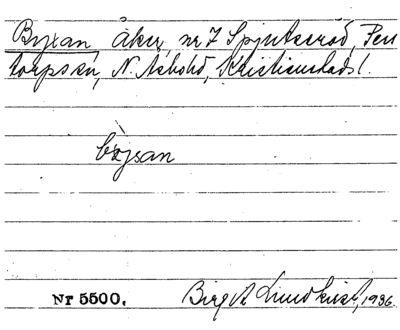 Bytan, åker, nr 7 Spjutseröd, Per
torps sn, N. Åsbohd, Kristianstads l.
Nr 5500. Birgit Lundkvist, 1936.